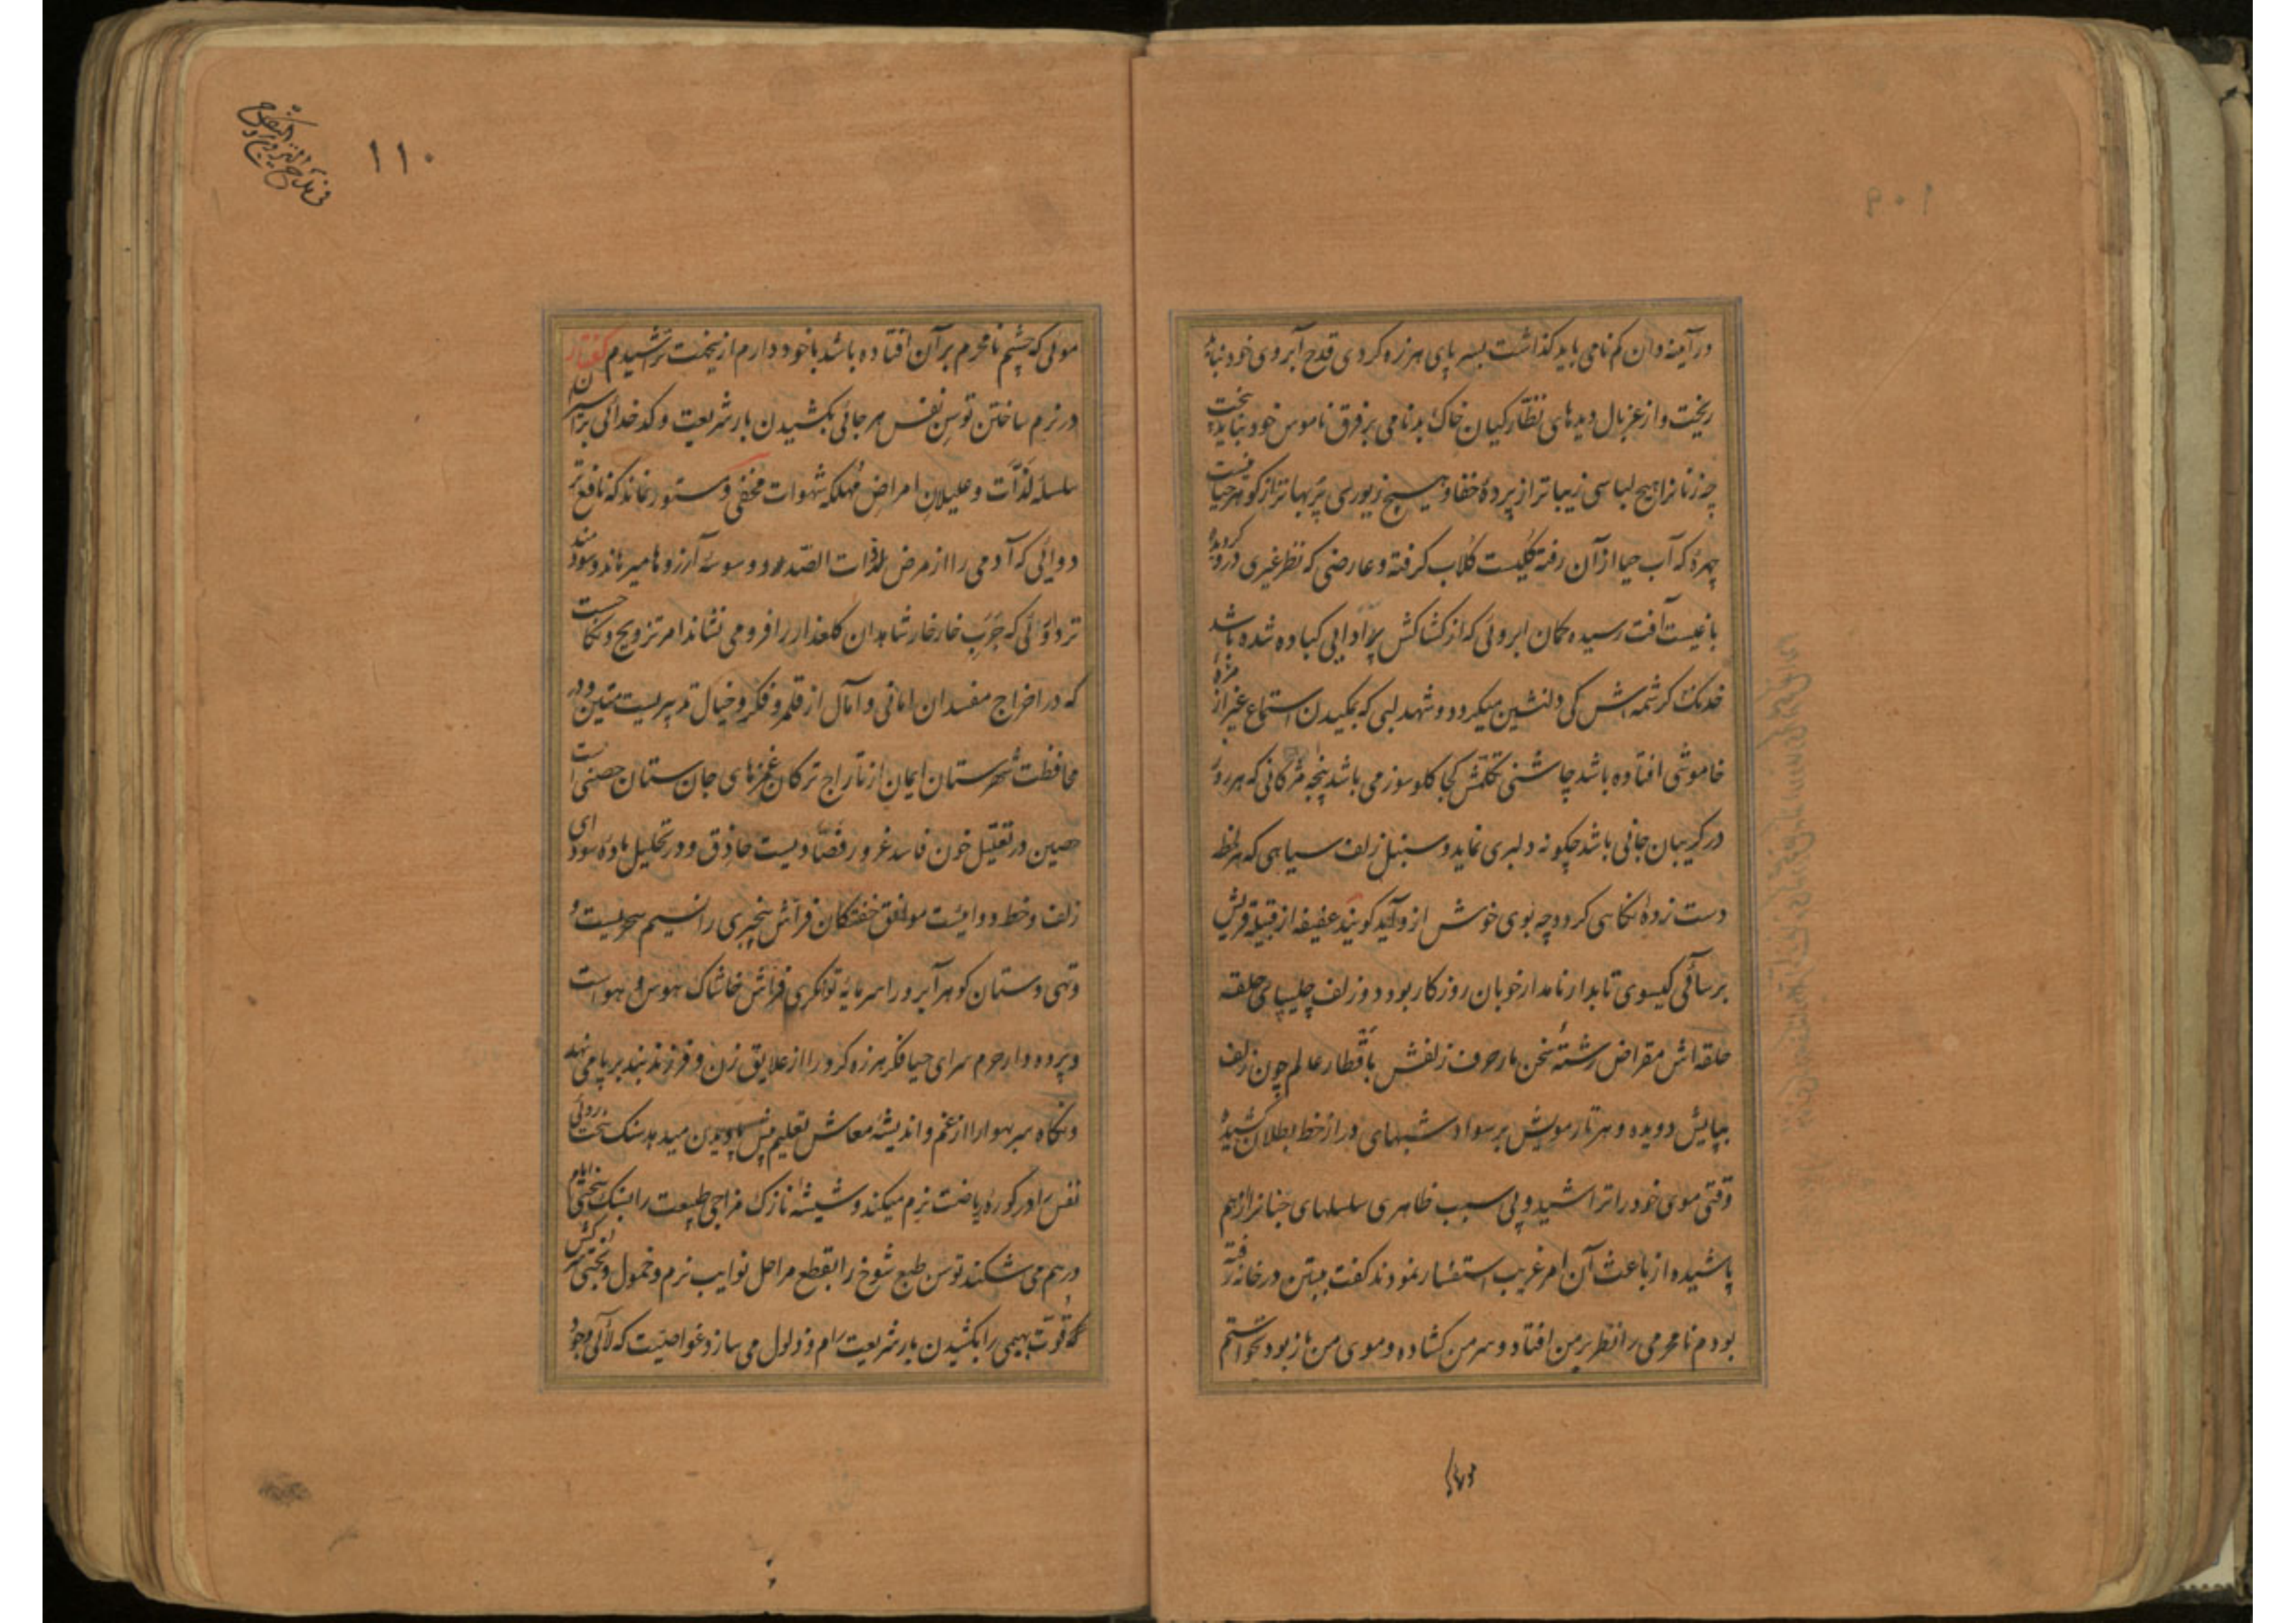 در آینه دان کم نامی باید کذاشت بسر پای هرزه کردی قدح آبروی خود نباید
ریخت و از غربال دیدهای نظارکیان خاک بدنامی بر فرق ناموس خود نباید بیخت
چه زنانرا هیچ لباسی زیباتر از پردهٔ خفا و هیچ زیوری پر بهاتر از کوهر حیا نیست
چهرهٔ که آب حیا از آن رفته کلیست کلاب کرفته و عارضی که نظر غیری درو کردیده
باغیست آفت رسیده کمان ابروئی که از کشاکش پر ادایی کباده شده باشد
خدنک کرشمه اش کی دلنشین میکردد و شهد لبی که بمکیدن استماع غیر از مزهٔ
خاموشی افتاده باشد چاشنی تکلمش کجا کلوسوز می باشد پنجه مژکانی که هر روز
در کریبان جانی باشد چکونه دلبری نماید و سنبل زلف سیاهی که هر لحظه
دست زدهٔ نکاهی کردد چه بوی خوش ازو آید کویند عفیفه از قبیلهٔ قریش
برسائی کیسوی تابدار نامدار خوبان روزکار بود دو زلف چلیپای حلقه
حلقه اش مقراض رشتهٔ سخن مار حرف زلفش باقطار عالم چون زلف
بپایش دویده و هر تار مویش بر سواد شبهای دراز خط بطلان کشیده
وقتی موی خود را تراشید و بی سبب ظاهری سلسلهای جنانرا از هم
پاشیده از باعث آن امر غریب استفسار نمودند کفت ببستن در خانه رفته
بودم نامحرمی را نظر بر من افتاد و سر من کشاده و موی من باز بود نخواستم
موئی که چشم نامحرم بر آن افتاده باشد با خود دارم ازینجهت تراشیدم کفتار
در نرم ساختن توسن نفس هر جائی بکشیدن بار شریعت و کدخدائی بر اسیران
سلسله لذّات و علیلان امراض مهلکه شهوات مخفی و مستور نماند که نافع تر
دوایی که آدمی را از مرض ذات الصّدر و وسوسهٔ آرزوها میرهاند و سودمند
تر دوائی که جرب خارخار شاهدان کلعذار را فرو می نشاند امر تزویج و نکاحست
که در اخراج مفسدان امانی و آمال از قلمرو فکر و خیال تدبیریست متین و در
محافظت شهرستان ایمان از تاراج ترکان غمزهای جان ستان حصنی است
حصین در تقلیل خون فاسد غرور فصّادیست حاذق و در تحلیل ماده سودای
زلف و خط دوائیست موافق خفتکان فراش بیخبری را نسیم سحریست و
و تهی دستان کوهر آبرو را سرمایه توانکری فراش خاشاک هوس و هواست
و پرده دار حرم سرای حیا فکر هرزه کرد را از علایق زن و فرزند بند بر پا می نهد
و نکاه سر بهوا را از غم و اندیشهٔ معاش تعلیم پیش پا دیدن میدهد سنک سخت روئی
نفس را در کوره ریاضت نرم میکند و شیشهٔ نازک مزاجی طبیعت را بسنک سختی ایام
درهم می شکند توسن طبع شوخ را بقطع مراحل نوایب نرم و خمول و بختی سرکش
قوّت بهیمی را بکشیدن بار شریعت رام و ذلول می سازد غواصیست که لآلی وجود
۱۱۰
۱۰۹